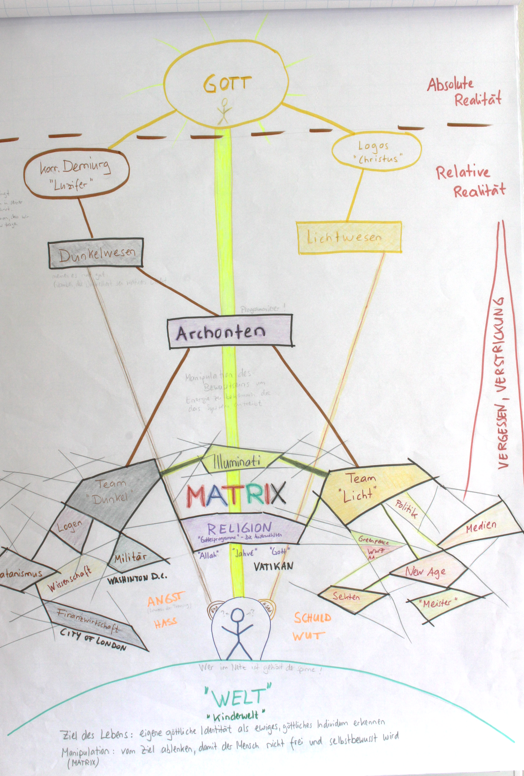 GOTT
Absolute
Realität
korr. Demiurg
"Luzifer"
Logos
"Christus"
Relative
Realität
Dunkelwesen
Lichtwesen
Archonten
Manipulation des
VERGESSEN, VERSTRICKUNG
Illuminati
Team
Dunkel
Team
"Licht"
MATRIX
Logen
Politik
Medien
RELIGION
"Allah" "Jahwe" "Gott"
VATIKAN
Militär
WASHINTON D.C.
atanismus
Wissenschaft
Greenpeace
WWF
New Age
Finanzwirtschaft
CITY OF LONDON
Sekten
"Meister"
ANGST
HASS
SCHULD
WUT
"WELT"
"Kinderwelt"
Ziel des Lebens: eigene göttliche Identität als ewiges, göttliches Individuum erkennen
Manipulation: vom Ziel ablenken, damit der Mensch nicht frei und selbstbewusst wird
(MATRIX)